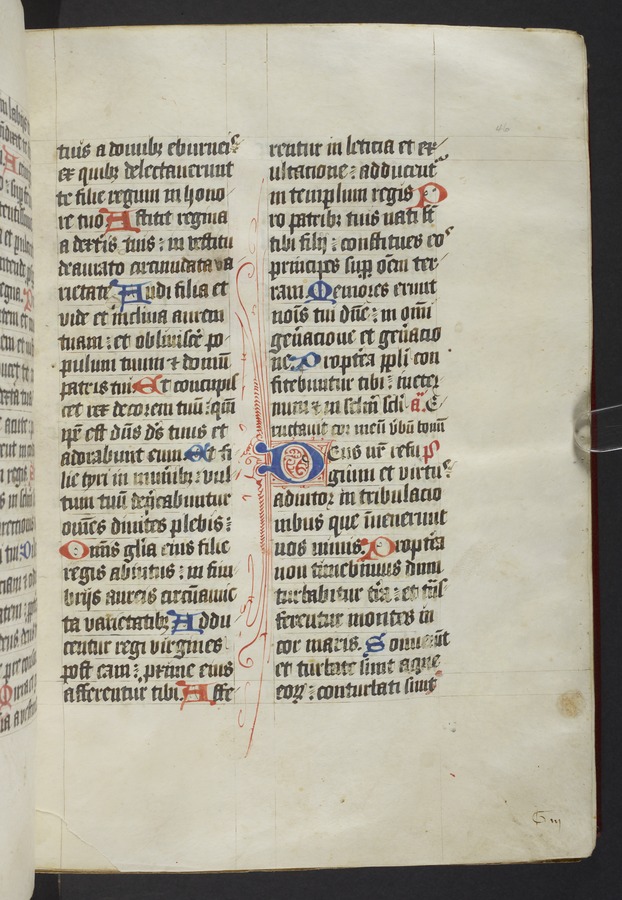 46
tuis a domibꝫ eburneis
ex quibꝫ delectauerunt
te filie regum in hono
re tuo Astitit regina
a dextris tuis : in vestitu
deaurato circumdata va
rietate Audi filia et
vide et inclina aurem
tuam : et obliuiscẽ po
pulum tuum ⁊ domũ
patris tui Et concupis
cet rex decorem tuũ : qm̃
ip̃e est dñs ds̃ tuus et
adorabunt eum Et fi
lie tyri in munibꝫ : vul
tum tuũ dep̃cabuntur
omnes diuites plebis :
Om̃is gl̃ia eius filie
regis abintus : in fim
brijs aureis circũamic
ta varietatibꝫ Addu
centur regi virgines
post eam : p̃xime eius
afferentur tibi. Affe
rentur in leticia et ex
ultacione : adducent̃
in templum regis P
ro patribꝫ tuis nati st̃
tibi filij : constitues eos
principes sup̃ oẽm ter
ram Memores erunt
nois̃ tui dñe : in om̃i
gen̄acione et gen̄acio
ne Propterea ppl̃i con
fitebuntur tibi : in eter
num ⁊ in sclm̃ scl̃i a᷎ E
ructauit cor meũ vb̃ũ bonũ
DEus nr̃ refu
gium et virtus
adiutor in tribulacio
nibus que inuenerunt
nos nimis. Propterea
non timebimus dum
turbabitur tr̃a : et trãs
ferentur montes in
cor maris. Sonuer̃ut
et turbate sunt aque
eoꝝ : conturbati sunt
G iij